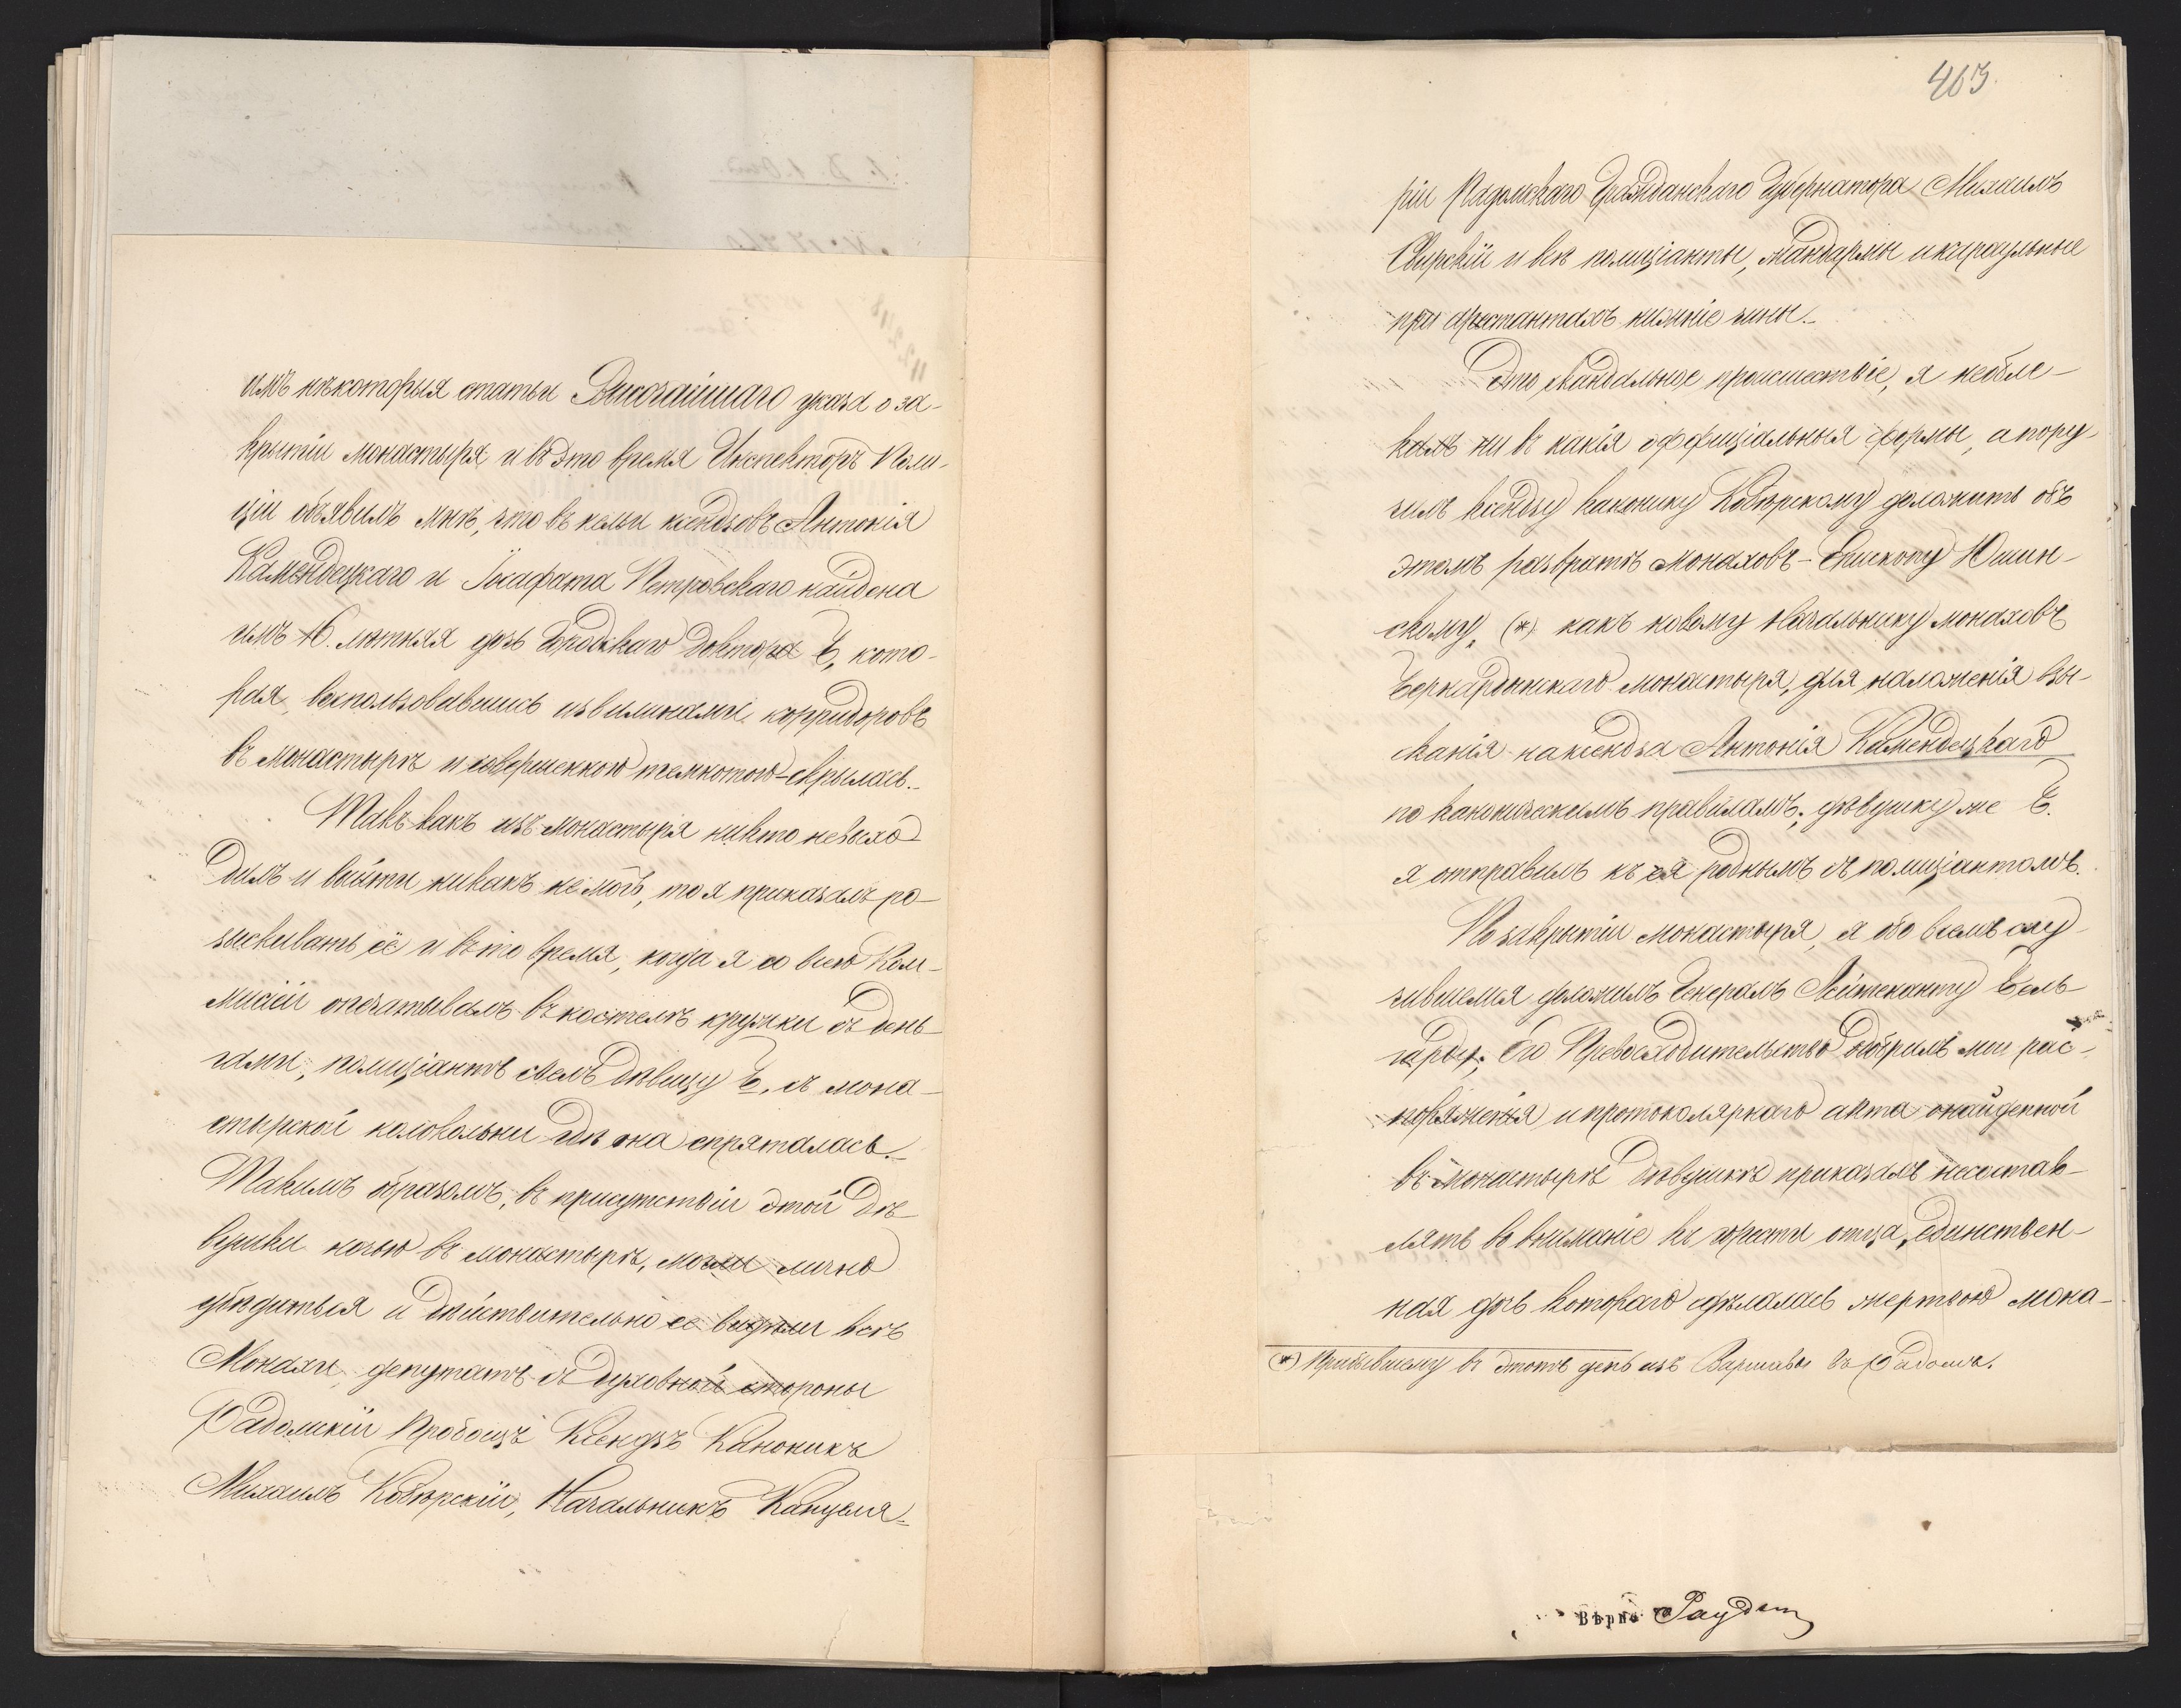 имъ нѣкоторыя статьи Высочайшаго указа о за-
крытіи монастыря и въ это время Инспекторъ Поли-
ціи объявилъ мнѣ, что въ кельи ксендзовъ Антонія
Камендецкаго и Іосафата Петровскаго найдена
имъ 16. лѣтняя дочь Городскаго Доктора Б., кото-
рая, воспользовавшись извилинами корридоровъ
въ монастырѣ и совершенною темнотою-скрылась.-
Такъ какъ изъ монастыря никто невыхо-
дилъ и выйти никакъ не могъ, то я приказалъ ро-
зыскивать её и въ то время, когда я со всею Ком-
мисіей опечатывалъ въ костелѣ кружки съ день-
гами, полиціантъ свелъ дѣвицу Б. съ мона-
стырской колокольни гдѣ она спряталась.-
Такимъ образомъ, въ присутствіи этой дѣ-
вушки ночью въ монастырѣ, могли лично
убѣдиться и дѣйствительно ее видѣли всѣ
Монахи, депутатъ съ духовной стороны
Радомскій Пробощъ Ксендзъ Каноникъ
Михаилъ Кобѣрскій, Начальникъ Канцеля-
403.
ріи Радомскаго Гражданскаго Губернатора Михаилъ
Свирскій и всѣ полиціанты, жандармы и караульные
при арестантахъ нижніе чины.-
Это скандальное происшествіе, я необле-
калъ ни въ какія оффиціальныя формы, а пору-
чилъ ксендзу канонику Кобѣрскому доложить объ
этомъ развратѣ монаховъ-Епископу Юшин-
скому, (*) какъ новому Начальнику монаховъ
Бернардынскаго монастыря, для наложенія взы-
сканія на ксендза Антонія Камендецкаго
по каноническимъ правиламъ; дѣвушку же Б.
я отправилъ къ ея роднымъ съ полиціантомъ.
По закрытіи монастыря, я обо всемъ слу-
чившемся доложилъ Генералъ Лейтенанту Бель-
гарду; Его Превосходительство одобрилъ мои рас-
поряженія и протоколярнаго акта о найденной
въ монастырѣ дѣвушкѣ приказалъ несостав-
лять во вниманіе къ горести отца, единствен-
ная дочь котораго сдѣлалась жертвою мона-
(*) Прибывшему въ этотъ день изъ Варшавы въ Радомъ.
Вѣрно